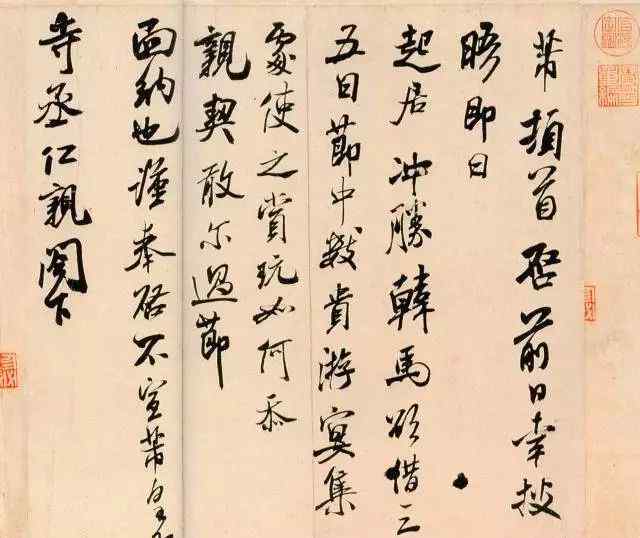 芾頓首啓前日幸披
晤即日
起居沖勝韓馬欲借三
五日節中數貴游宴集
處使之賞玩如何忝
親契敢尒過節
面納也謹奉啓不宣芾皇
寺丞仁親閣下